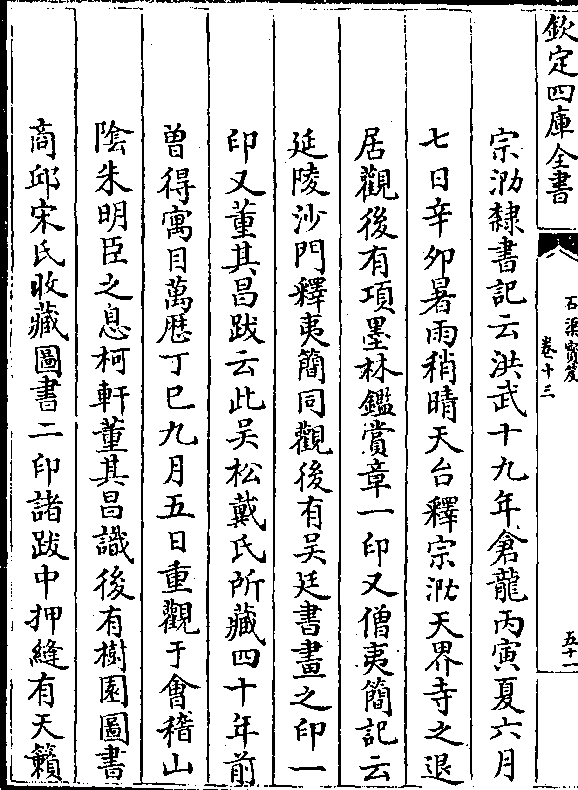 欽定四庫全書
石渠寶笈
卷十三
五十一
宗泐隸書記云洪武十九年倉龍丙寅夏六月
七日辛卯暑雨稍晴天台釋宗泐天界寺之退
居觀後有項墨林鑑賞章一印又僧夷簡記云
延陵沙門釋夷簡同觀後有吴廷書畫之印一
印又董其昌跋云此吴松戴氏所藏四十年前
曽得寓目萬厯丁巳九月五日重觀于會稽山
隂朱明臣之息柯軒董其昌識後有樹園圖書
商邱宋氏收藏圖書二印諸跋中押縫有天籟